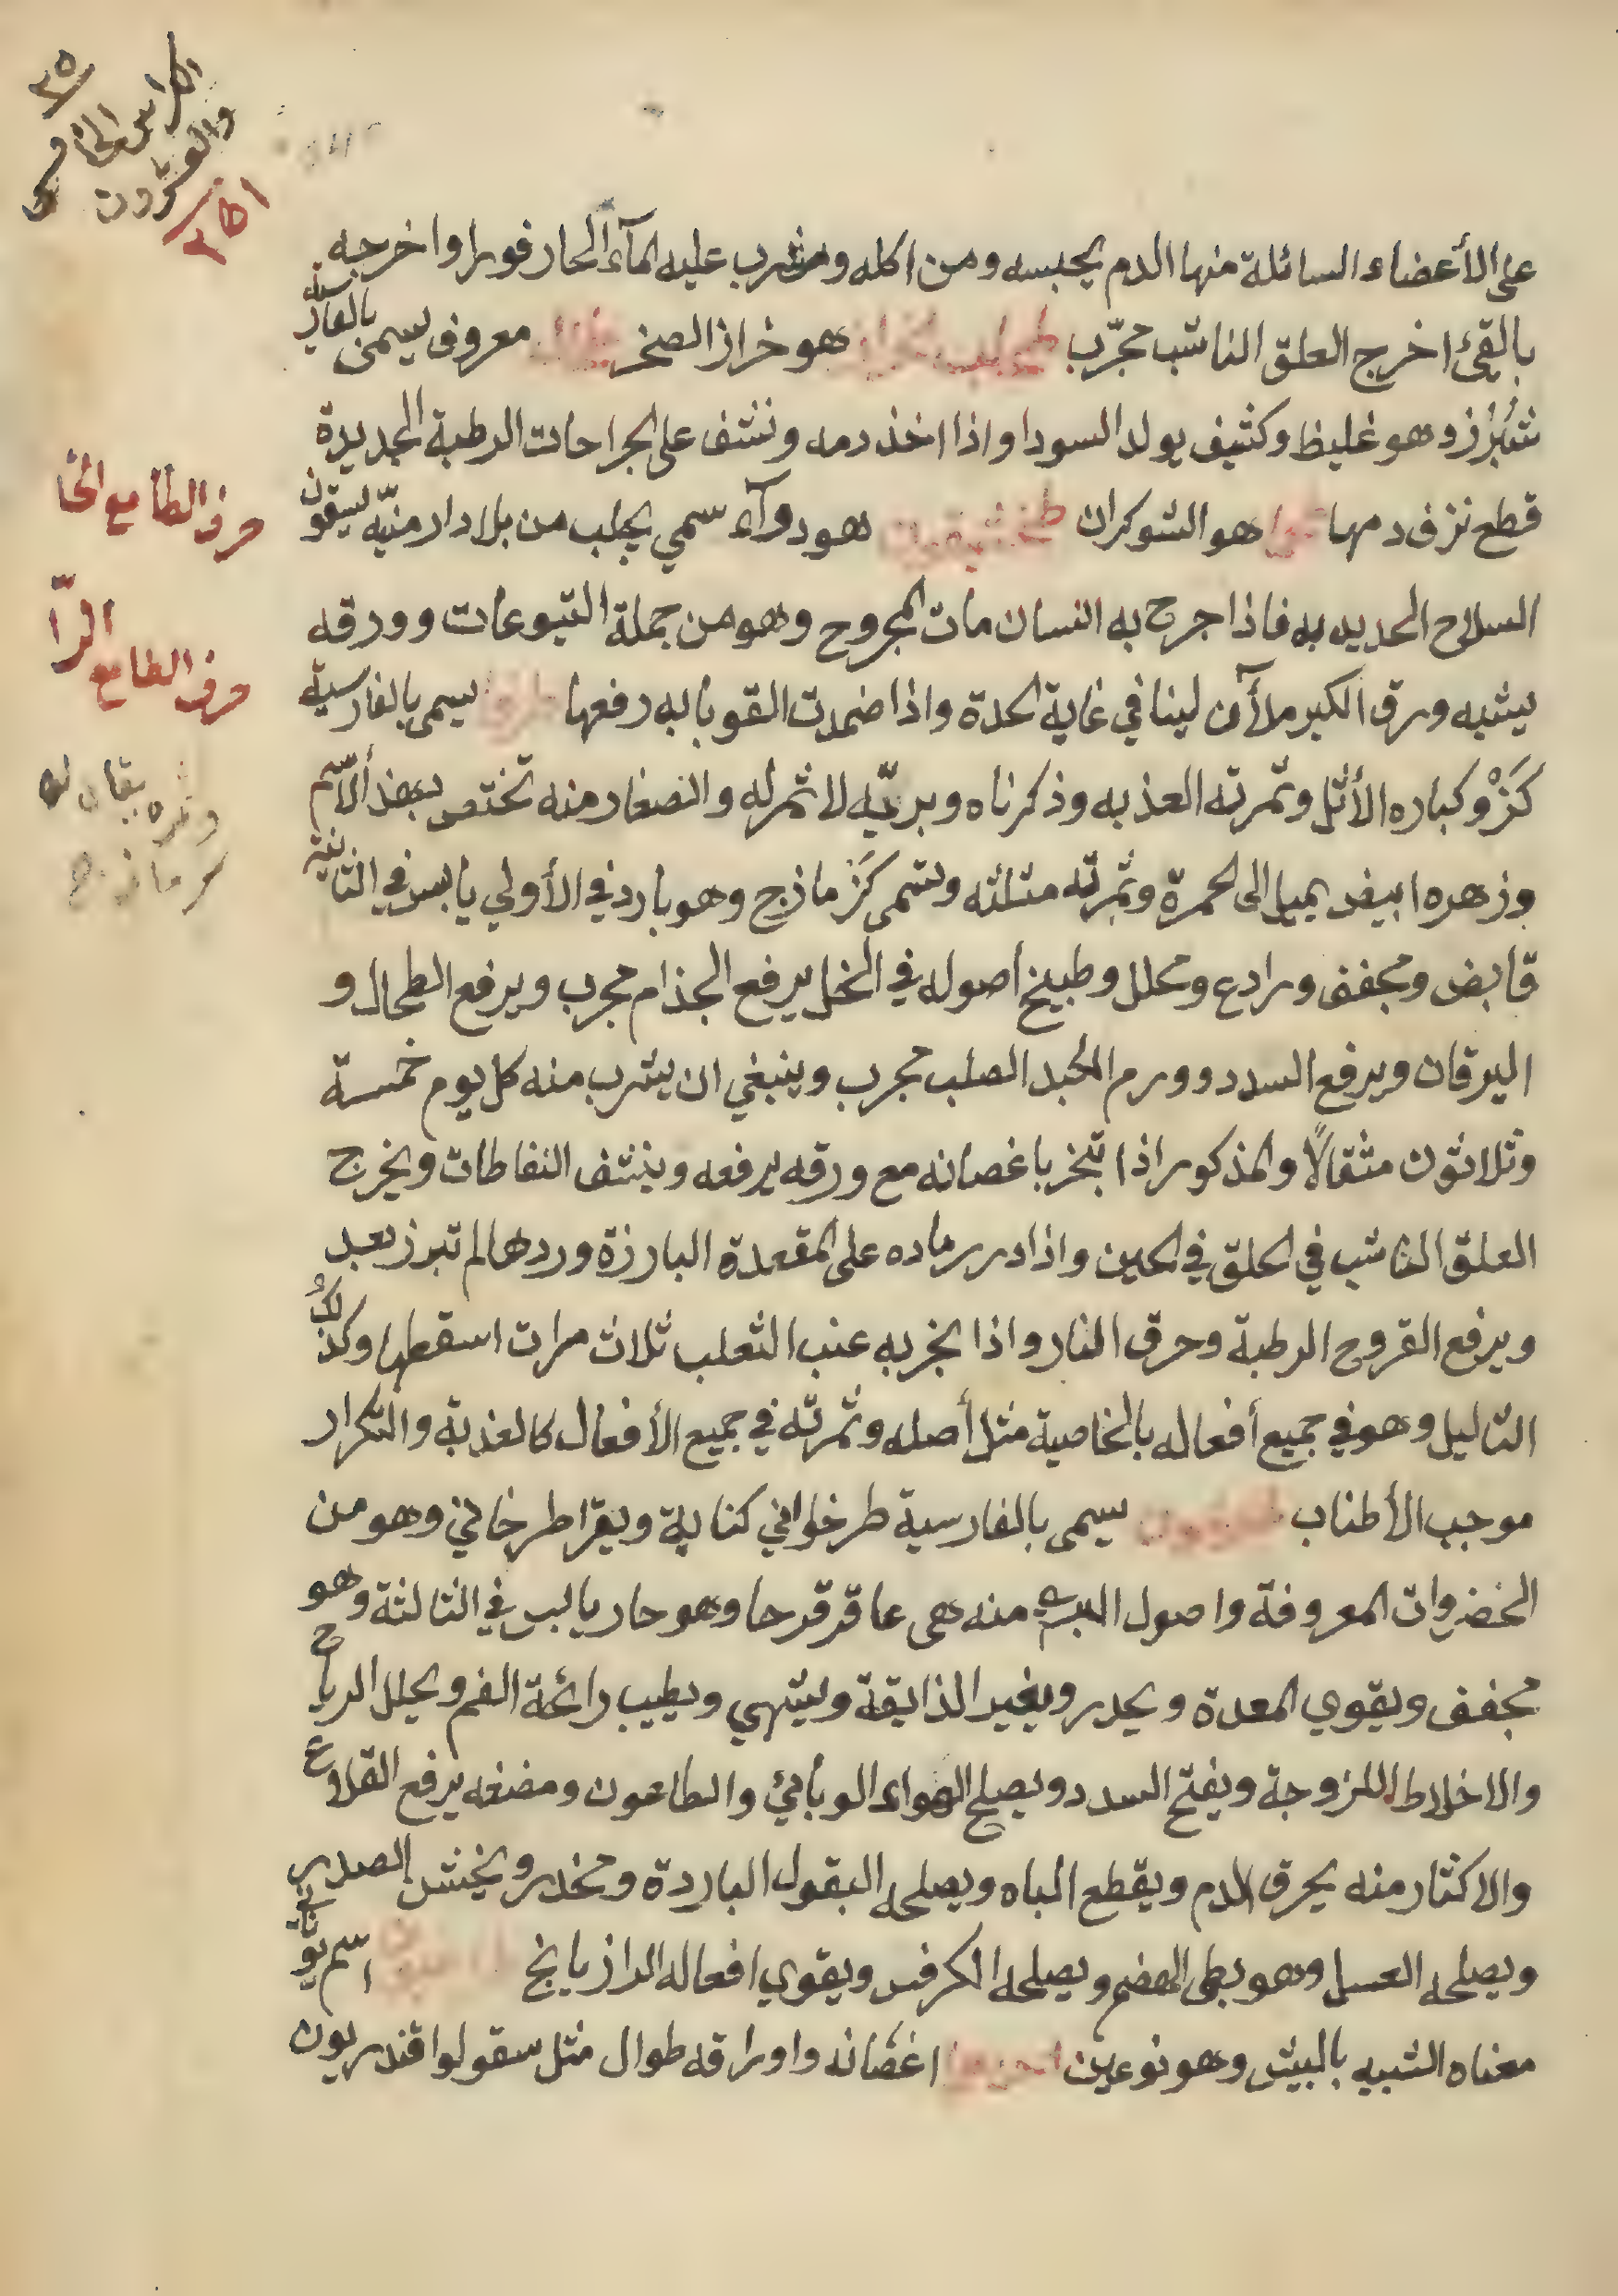 ٢٥
الكراس الخامس
والعشرون
٢٥١
على الأعضاء السائلة منها الدم يحبسه ومن اكله وشرب عليه المآء الحار فورا واخرجه
بالقئ اخرج العلق الناشب مجرّب طحلب هو خراز الصخر معروف يسمى بالفارسية
شُبُزْ وهو غليظ وكثيف يولد السودا واذا اخذ دمه ونشف على الجراحات الرطبة الجديدة
قطع نزف دمها هو الشوكران طخشيقون هو دوآء سمي يجلب من بلاد ارمنيّه يسقون
السلاح الحديد به فاذا جرح به انسان مات المجروح وهو من جملة اليتوعات وورقه
يشبه ورق الكبر ملآن لبنا في غاية الحدة واذا ضمدت القوبا به رفعها طرفا يسمى بالفارسية
كَزْ وكباره الأثل وثمرته العذبه وذكرناه وبريّه لا ثمر له والصغار منه تختص بهذ الآسم
وزهره ابيض يميل الى الحمرة وثمرته مثلثه وتسمى كَزْمازج وهو بارد في الأولي يابس في الثانية
قابض ومجفف ورادع ومحلل وطبيخ أصوله في الخل يرفع الجذام مجرب ويرفع الطحال و
اليرقان ويرفع السدد وورم الكبد الصلب مجرب وينبغي ان يشرب منه كل يوم خمسة
وثلاثون مثقالًا والمذكور اذا تبخر باغصانه مع ورقه يرفعه وينشف النفاطات ويخرج
العلق الناشب في الحلق في الحين واذا در رماده على المقعدة البارزة وردها لم تبرز بعد
ويرفع القروح الرطبة وحرق النار واذا بخر به عنب الثعلب ثلاث مرات اسقطها وكذلك
الثاليل وهو في جميع أفعاله بالخاصية مثل أصله وثمرته في جميع الأفعال كالعذبة والتكرار
موجب الأطناب طرخون يسمى بالفارسية طرخواني كتابة ويقرا طرخاني وهو من
الخضروات المعروفة واصول البري منه هي عاقر قرحا وهو حار يابس في الثالثة وهو
مجفف ويقوي المعدة ويحدر ويغير الذايقة ويشتهي ويطيب رائحة الفم ويحلل الرياح
والاخلاط اللزوجة ويفتح السدد ويصلح الهواء الوبائي والطاعون ومضغه يرفع القلاع
والاكثار منه يحرق الدم ويقطع الباه ويصلحه البقول الباردة ومخدر ويخشن الصدر
ويصلحه العسل وهو بطى الهضم ويصلحه الكرفس ويقوي افعاله الرازيانج اسم يوناني
معناه الشبيه بالبيش وهو نوعين احدهما اغصانه واوراقه طوال مثل سقولوا قندريون
حرف الطا مع الخا
حرف الطا مع الرّا
وثمره يقال له